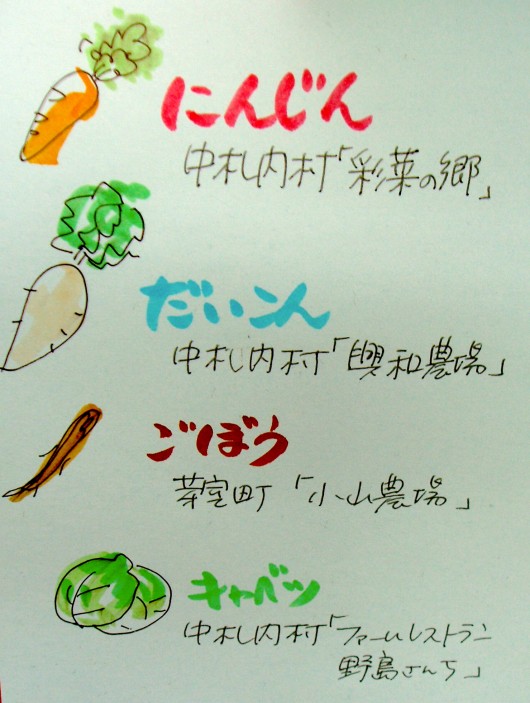 にんじん
中札内村「彩菜の郷」
だいこん
中札内村「興和農場」
ごぼう
芽室町「小山農場」
キャベツ
中札内村「ファームレストラン
野島さんち」